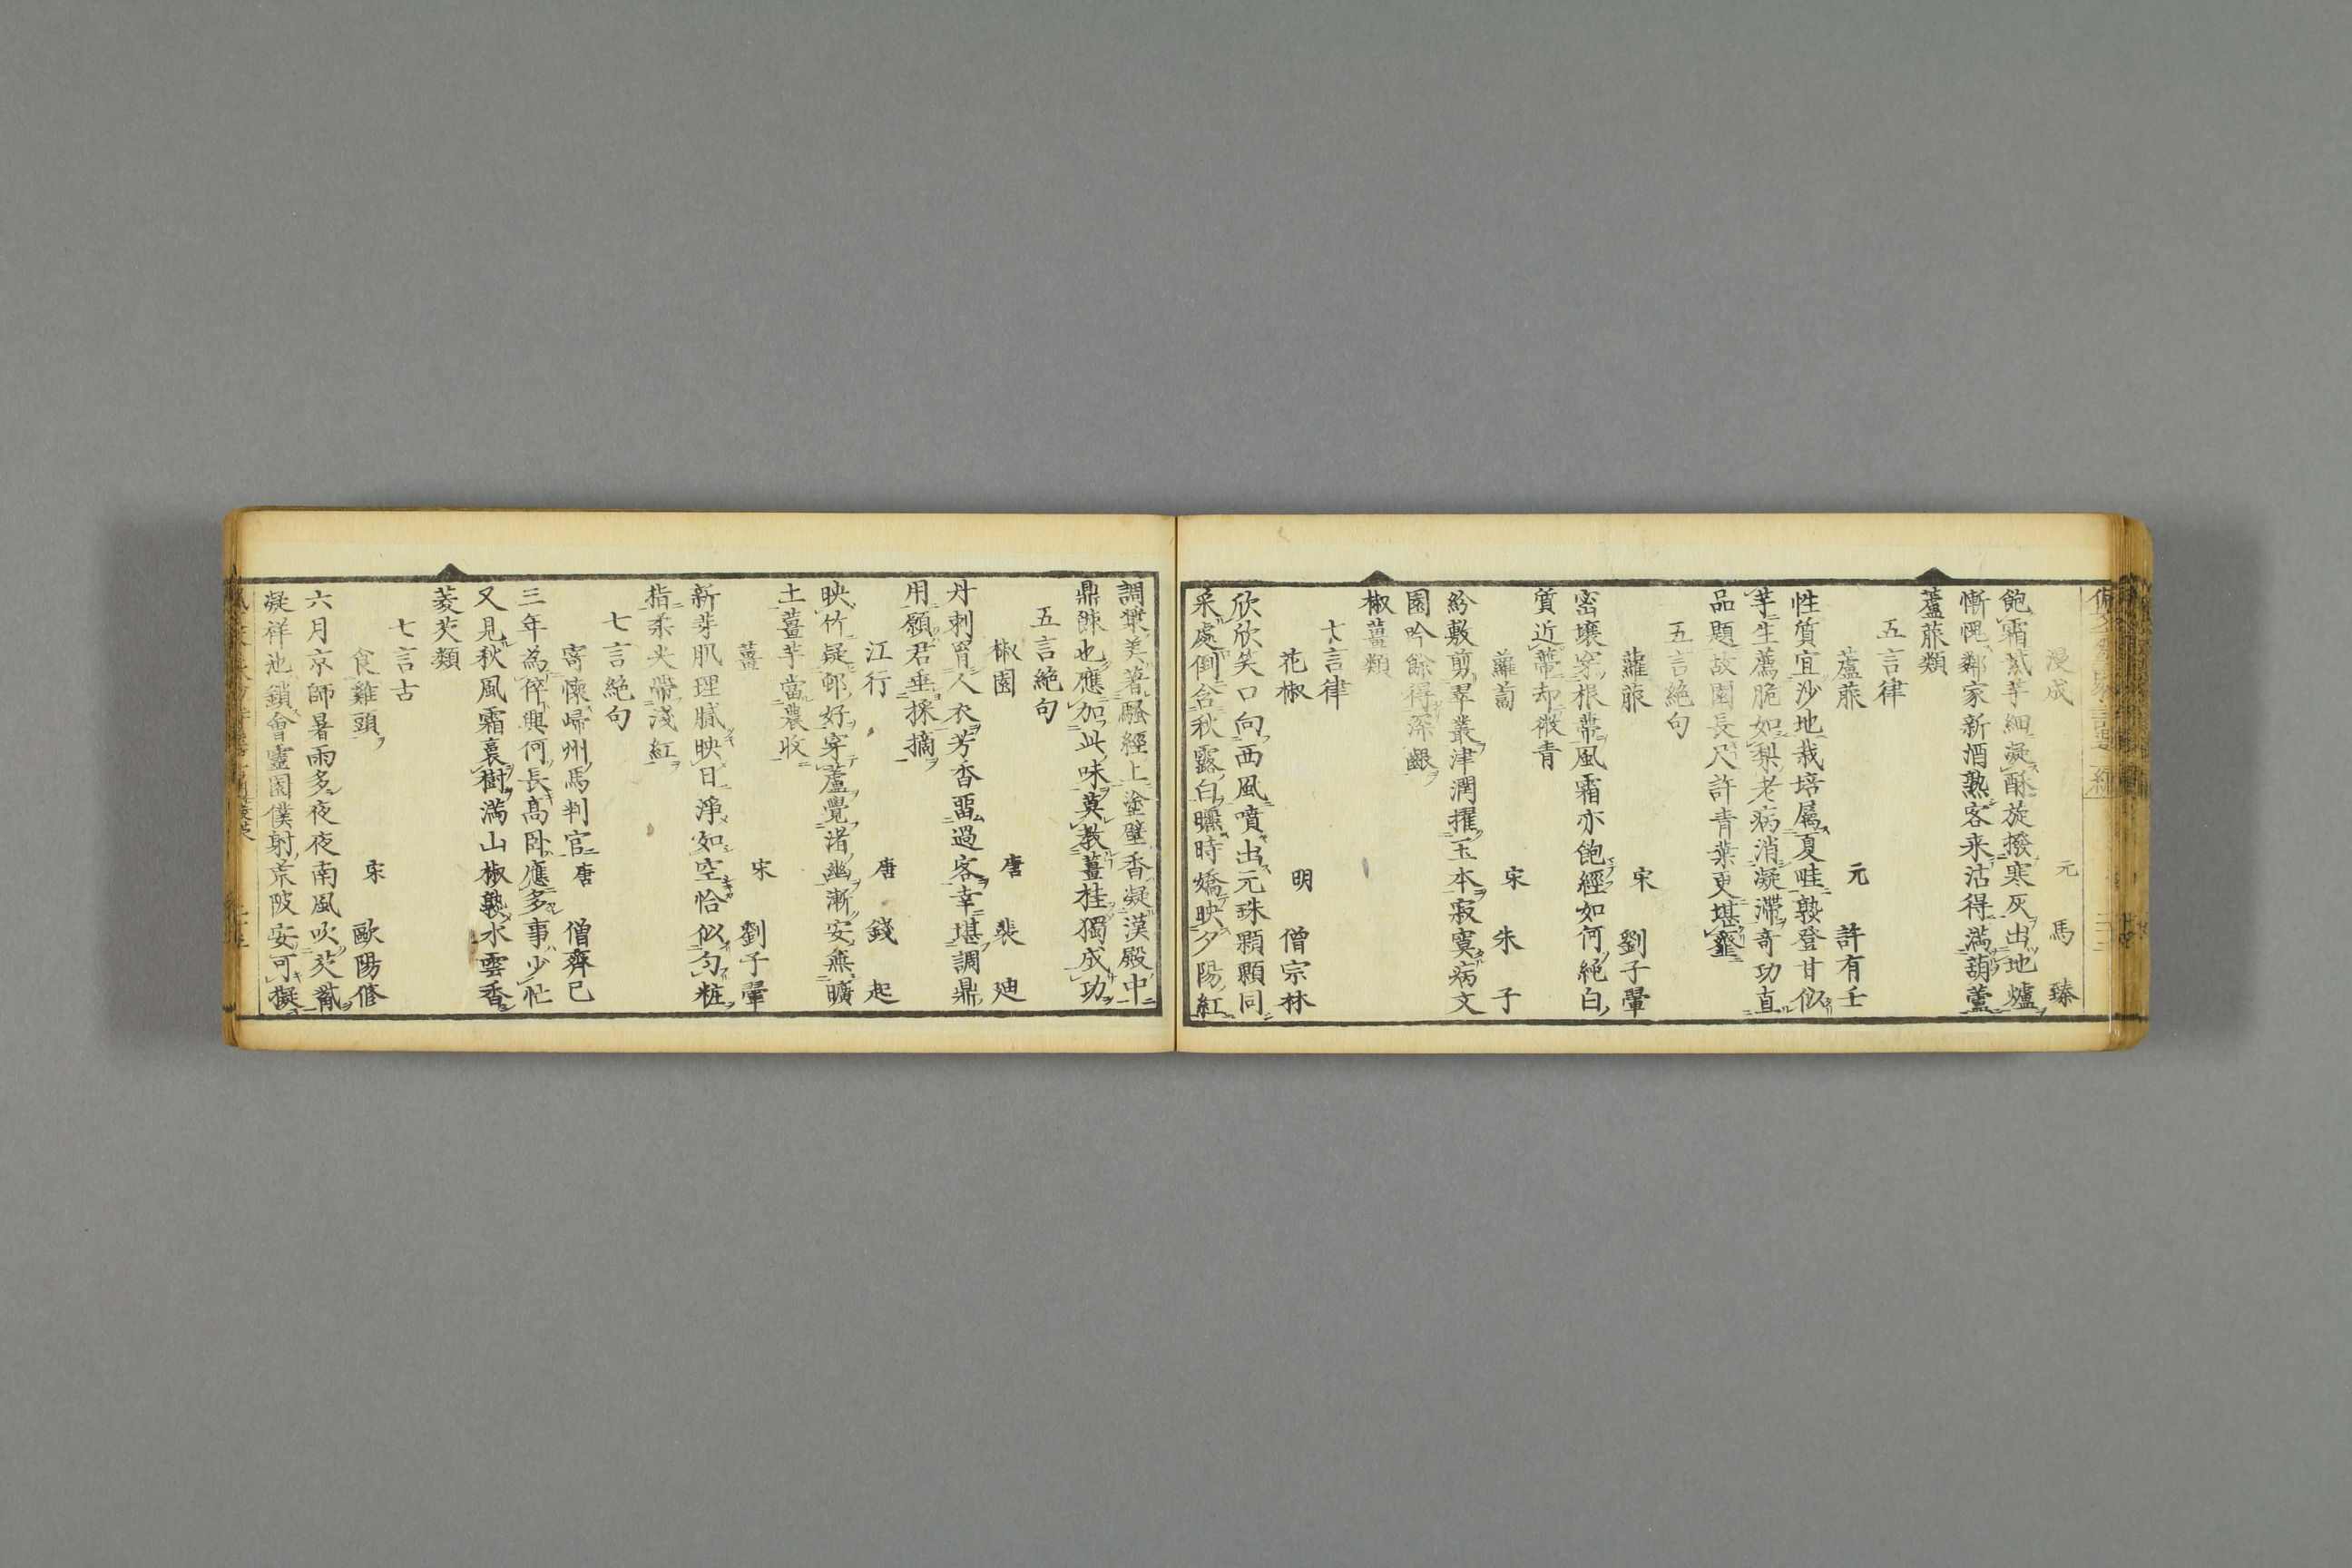 漫成 元 馬臻
飽霜紫芋細凝酥旋撥寒灰出地爐
慚愧鄰家新酒熟客来沽得滿葫蘆
蘆菔類
五言律
蘆菔 元 許有壬
性質宜沙地栽培属夏畦熟登甘似
芋生薦脆如梨老病消凝滯奇功直
品題故園長尺許青葉更堪虀
五言絶句
蘿菔 宋 劉子翬
密壤穿根蔕風霜亦飽經如何純白
質近蔕却微青
蘿蔔 宋 朱子
紛敷剪翠叢津潤擢玉本寂寞病文
園吟餘得深齦
椒薑類
七言律
花椒 明 僧宗林
欣欣笑口向西風噴出元珠顆顆同
采處倒含秋露白曬時嬌映夕陽紅
調漿美著騷經上塗壁香凝漢殿中
鼎餗也應加此味莫教薑桂獨成功
五言絶句
椒園 唐 裴迪
丹刺罥人衣芳香畱過客幸堪調鼎
用願君垂採摘
江行 唐 錢起
映竹疑村好穿蘆覺渚幽漸安無曠
土薑芋當農收
薑 宋 劉子翬
新芽肌理膩映日淨如空恰似勻粧
指柔尖帶淺紅
七言絶句
寄懐歸州馬判官 唐 僧齊己
三年為倅興何長高卧應多事少忙
又見秋風霜裛樹滿山椒熟水雲香
菱芡類
七言古
食雞頭 宋 歐陽修
六月京師暑雨多夜夜南風吹芡觜
凝祥池鎖會靈園僕射荒陂安可擬